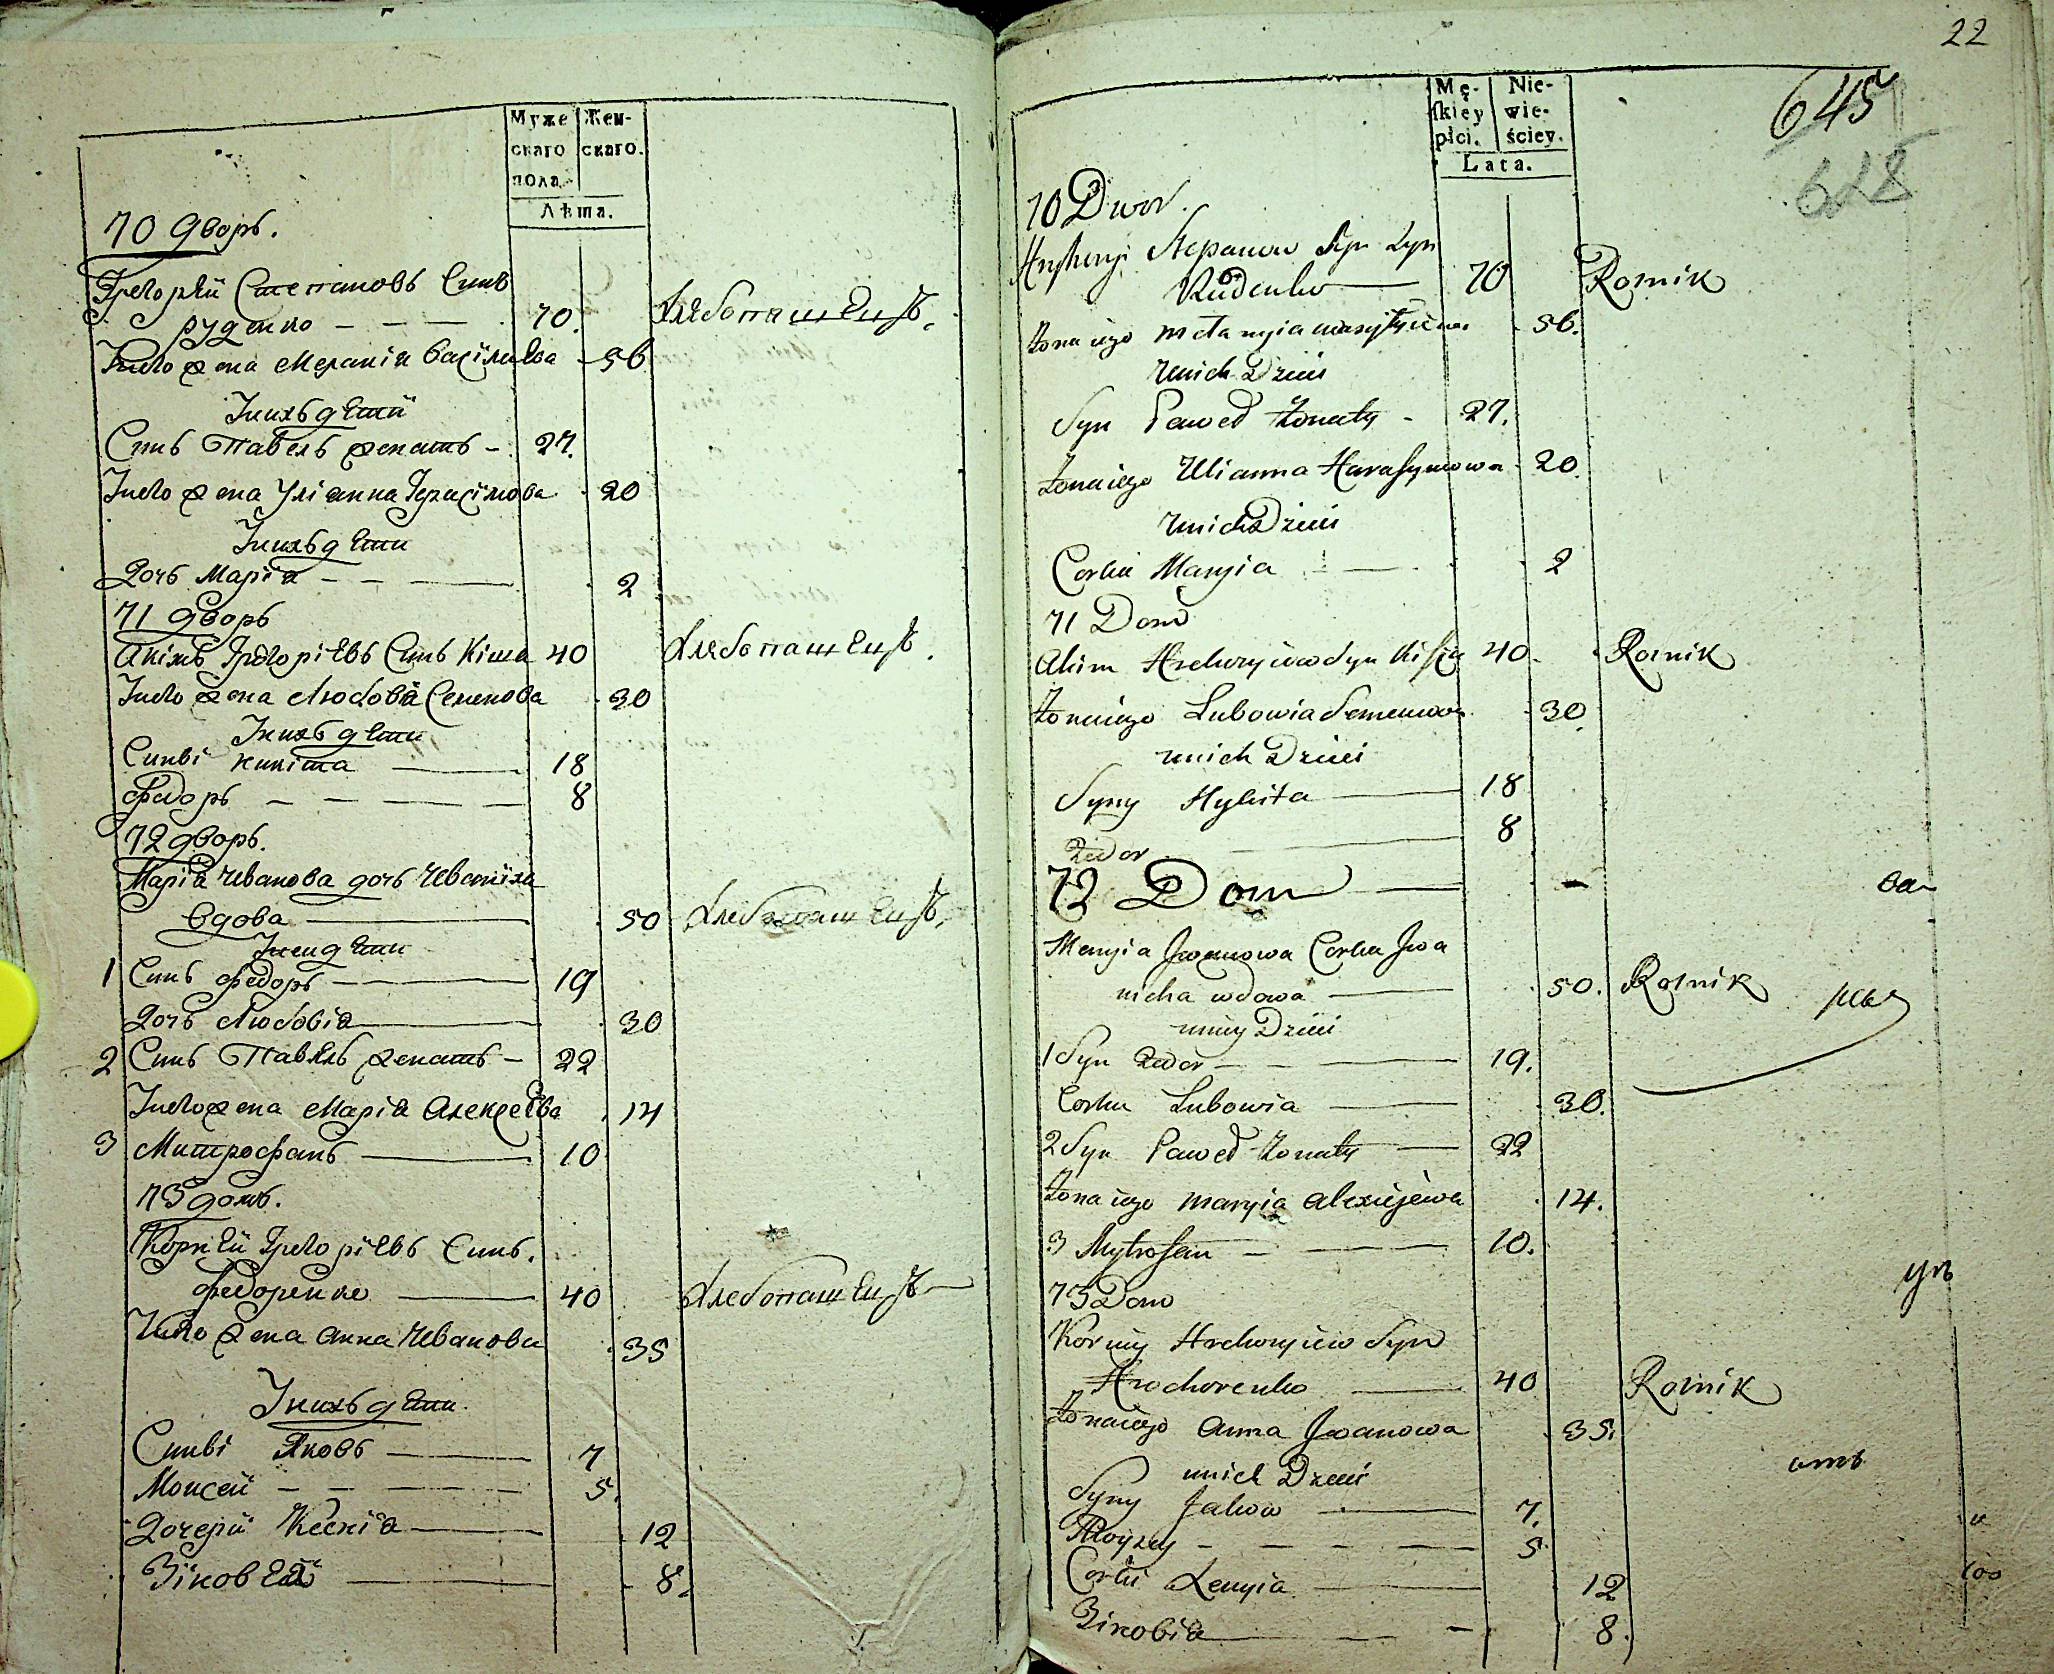 Муже
скаго
пола.
Жен-
скаго.
Лѣта.
70 дворъ.
Григорѣй Степановъ Синъ
руденко 70. хлебопашецъ.
Жена Меланія васілиева 56
Інихъ дѣтй
Синъ Павелъ женатъ 27.
жена Уліанна Герасімова 20
Інихъ дѣти
Дочъ Маріа 2
71 дворъ
Акімъ Григоріевъ Синъ Кіша 40 хлебопашецъ.
жена Любовіа Семенова 30
Інихъ дѣти
Синві никіта 18
федоръ 8
72 дворъ.
Маріа Иванова дочъ Иваніха
вдова 50 хлебопашецъ.
Іней дѣти
1 Синъ федоръ 19
Дочъ Любовіа 30
2 Синъ Павелъ женатъ 22
жена Маріа Алексеева 14
3 Митрофанъ 10
73 домъ.
Корнѣй Григоріевъ Синъ.
федоренко 40 хлебопашецъ
жена Анна Иванова 35
Інихъ дѣти.
Синві Яковъ 7
Моисей 5.
Дочерй Ксеніа 12
Зіновѣа 8.
22
645
628
Mę-
skiey
płci.
Nie-
wie-
ściey.
Lata.
70 Dwor.
Stepanow Syn
Rudenko 70 Rolnik
Żona iego Mełanyia wasylijewa 56.
unich Dzieci
Syn Paweł żonaty 27.
Żona iego Ulianna Harasymowa 20
unich Dzieci
Corka Maryia 2
71 Dom
Akim Hrehoryiew Syn Kisza 40 Rolnik
Żona iego Lubowia Semenowa 30
unich Dzieci
Syny Nykita 18
Fedor 8
72 Dom
ва
Maryia Jwanowa Corka Jwa
nicha wdowa 50. Rolnik
uniey Dzieci
1 Syn Fedor 19.
Corka Lubowia 30.
2 Syn Paweł żonaty 22
Żona iego Maryia Alexiejewa 14.
3 Mytrofan 10.
73 Dom
Korniey Hrehoryiew Syn
Hrehorenko 40 Rolnik
Żona iego Anna Jwanowa 35.
unich Dzieci
Syny Jakow 7.
Moyzey 5
Corki Xenyia 12
Зіновіа 8.